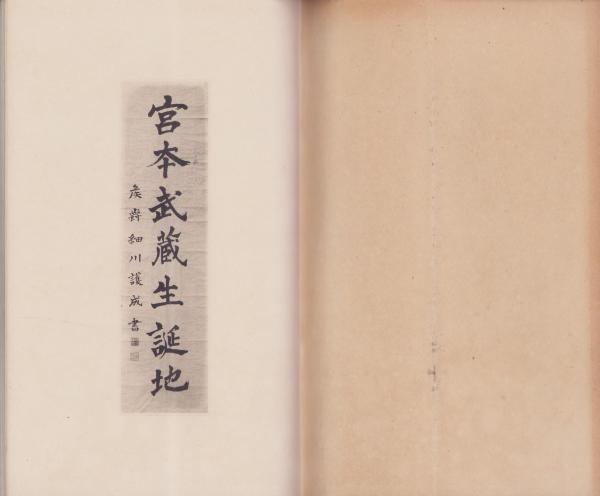 宮本武蔵生誕地
侯爵細川護成書